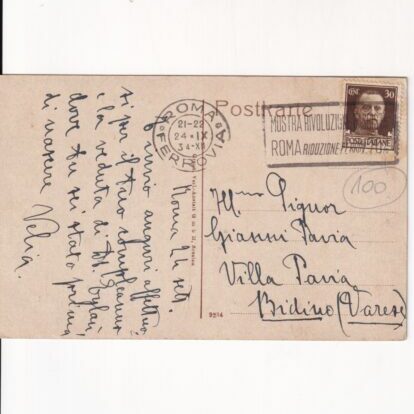 Postkarte
ROMA
FERROVIA
21-22
24·IX
34·XII
MOSTRA RIVOLUZIONE
ROMA RIDUZIONE FERROV.
CENT 30
POSTE ITALIANE
100
Roma 24 sett.
ti invio auguri affettuosi
per il tuo compleanno
e la veduta di
dove tu sei stato prima
di nascere Velia.
Ill.mo Signor
Gianni Pavia
Villa Pavia
Bidino (Varese)
9214